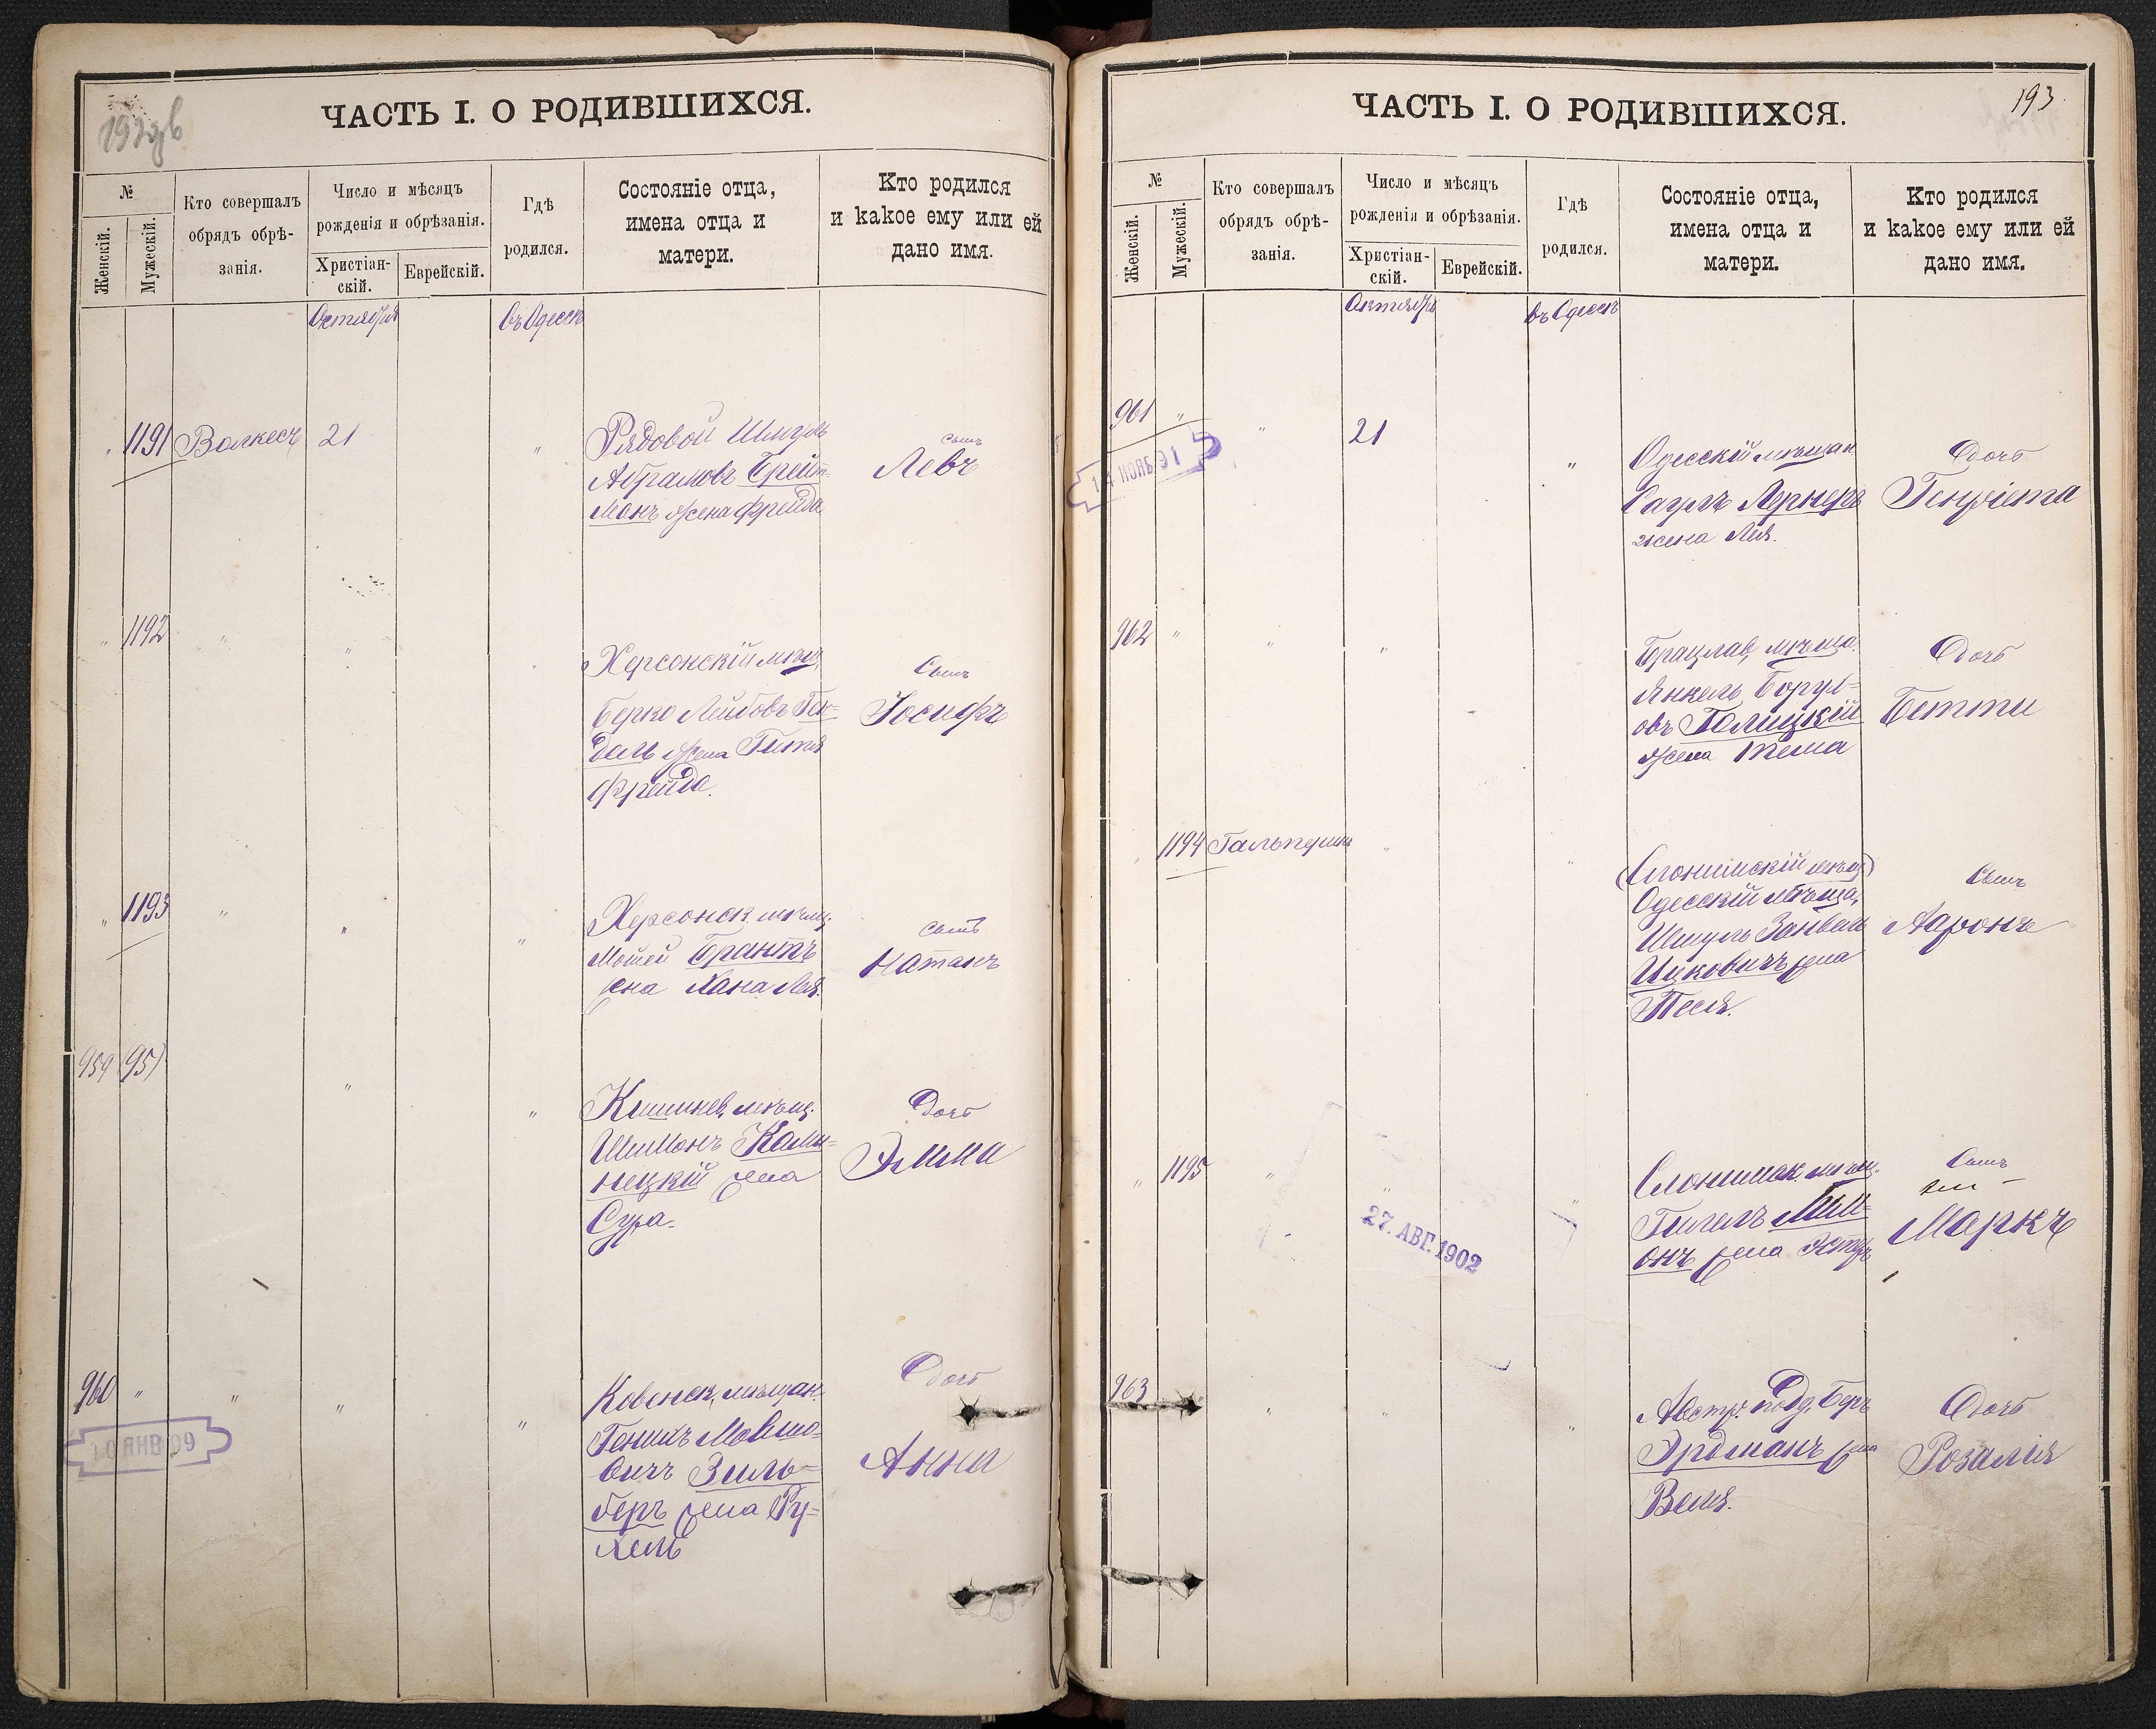 ЧАСТЬ I. О РОДИВШИХСЯ.
№
Женскій.
Мужескій.
Кто совершалъ
обрядъ обрѣ-
занія.
Число и мѣсяцъ
рожденія и обрѣзанія.
Христіан-
скій.
Еврейскій.
Гдѣ
родился.
Состояніе отца,
имена отца и
матери.
Кто родился
и какое ему или ей
дано имя.
Октября
въ Одессѣ
" 1191 Волкесъ 21 "
Рядовой Шмуль
Абрамовъ Брейт-
Манъ жена Фрейда
сынъ
Левъ
" 1192 " "
Херсонскій мѣщ.
Берко Лейбовъ Ген-
дель жена Гитя
Фрейда.
Сынъ
Іосифъ
" 1193 " " "
Херсонск. мѣщ.
Мошей Брантъ
жена Хана Лея.
сынъ
Натанъ
959 (95) " "
Кишинев. мѣщ.
Шимонъ Коми-
нецкій жена
Сура.
Дочь
Эмма
960 " " " "
Ковенск. мѣщан.
Генихъ Мовшо-
вичъ Зиль-
беръ жена Ру-
хель
Дочь
Анна
10 ЯНВ 99
ЧАСТЬ I. О РОДИВШИХСЯ.
193.
№
Женскій.
Мужескій.
Кто совершалъ
обрядъ обрѣ-
занія.
Число и мѣсяцъ
рожденія и обрѣзанія.
Христіан-
скій.
Еврейскій.
Гдѣ
родился.
Состояніе отца,
имена отца и
матери.
Кто родился
и какое ему или ей
дано имя.
Октября
въ Одессѣ
961 " " 21 "
14 НОЯБ 91
Одесскій мѣщан
Саулъ Лернеръ
жена Лея.
Дочь
Генріета
962 " " "
Брацлав. мѣща.
Янкель Борух-
овъ Голицкій
жена Тема
Дочь
Бетти
1194 Гальперинъ " "
(Слонимскій мѣщ)
Одесскій мѣща.
Шмуль Занвель
Ицковичъ жена
Песя.
Сынъ
Ааронъ
" 1195 " " "
27. АВГ. 1902
Слонимск. мѣщ.
Гилель
онъ жена Эстеръ
Сынъ
Маркъ
963 " " "
Австр. подд. Беръ
Эрдманъ жена
Веля.
Дочь
Розалія